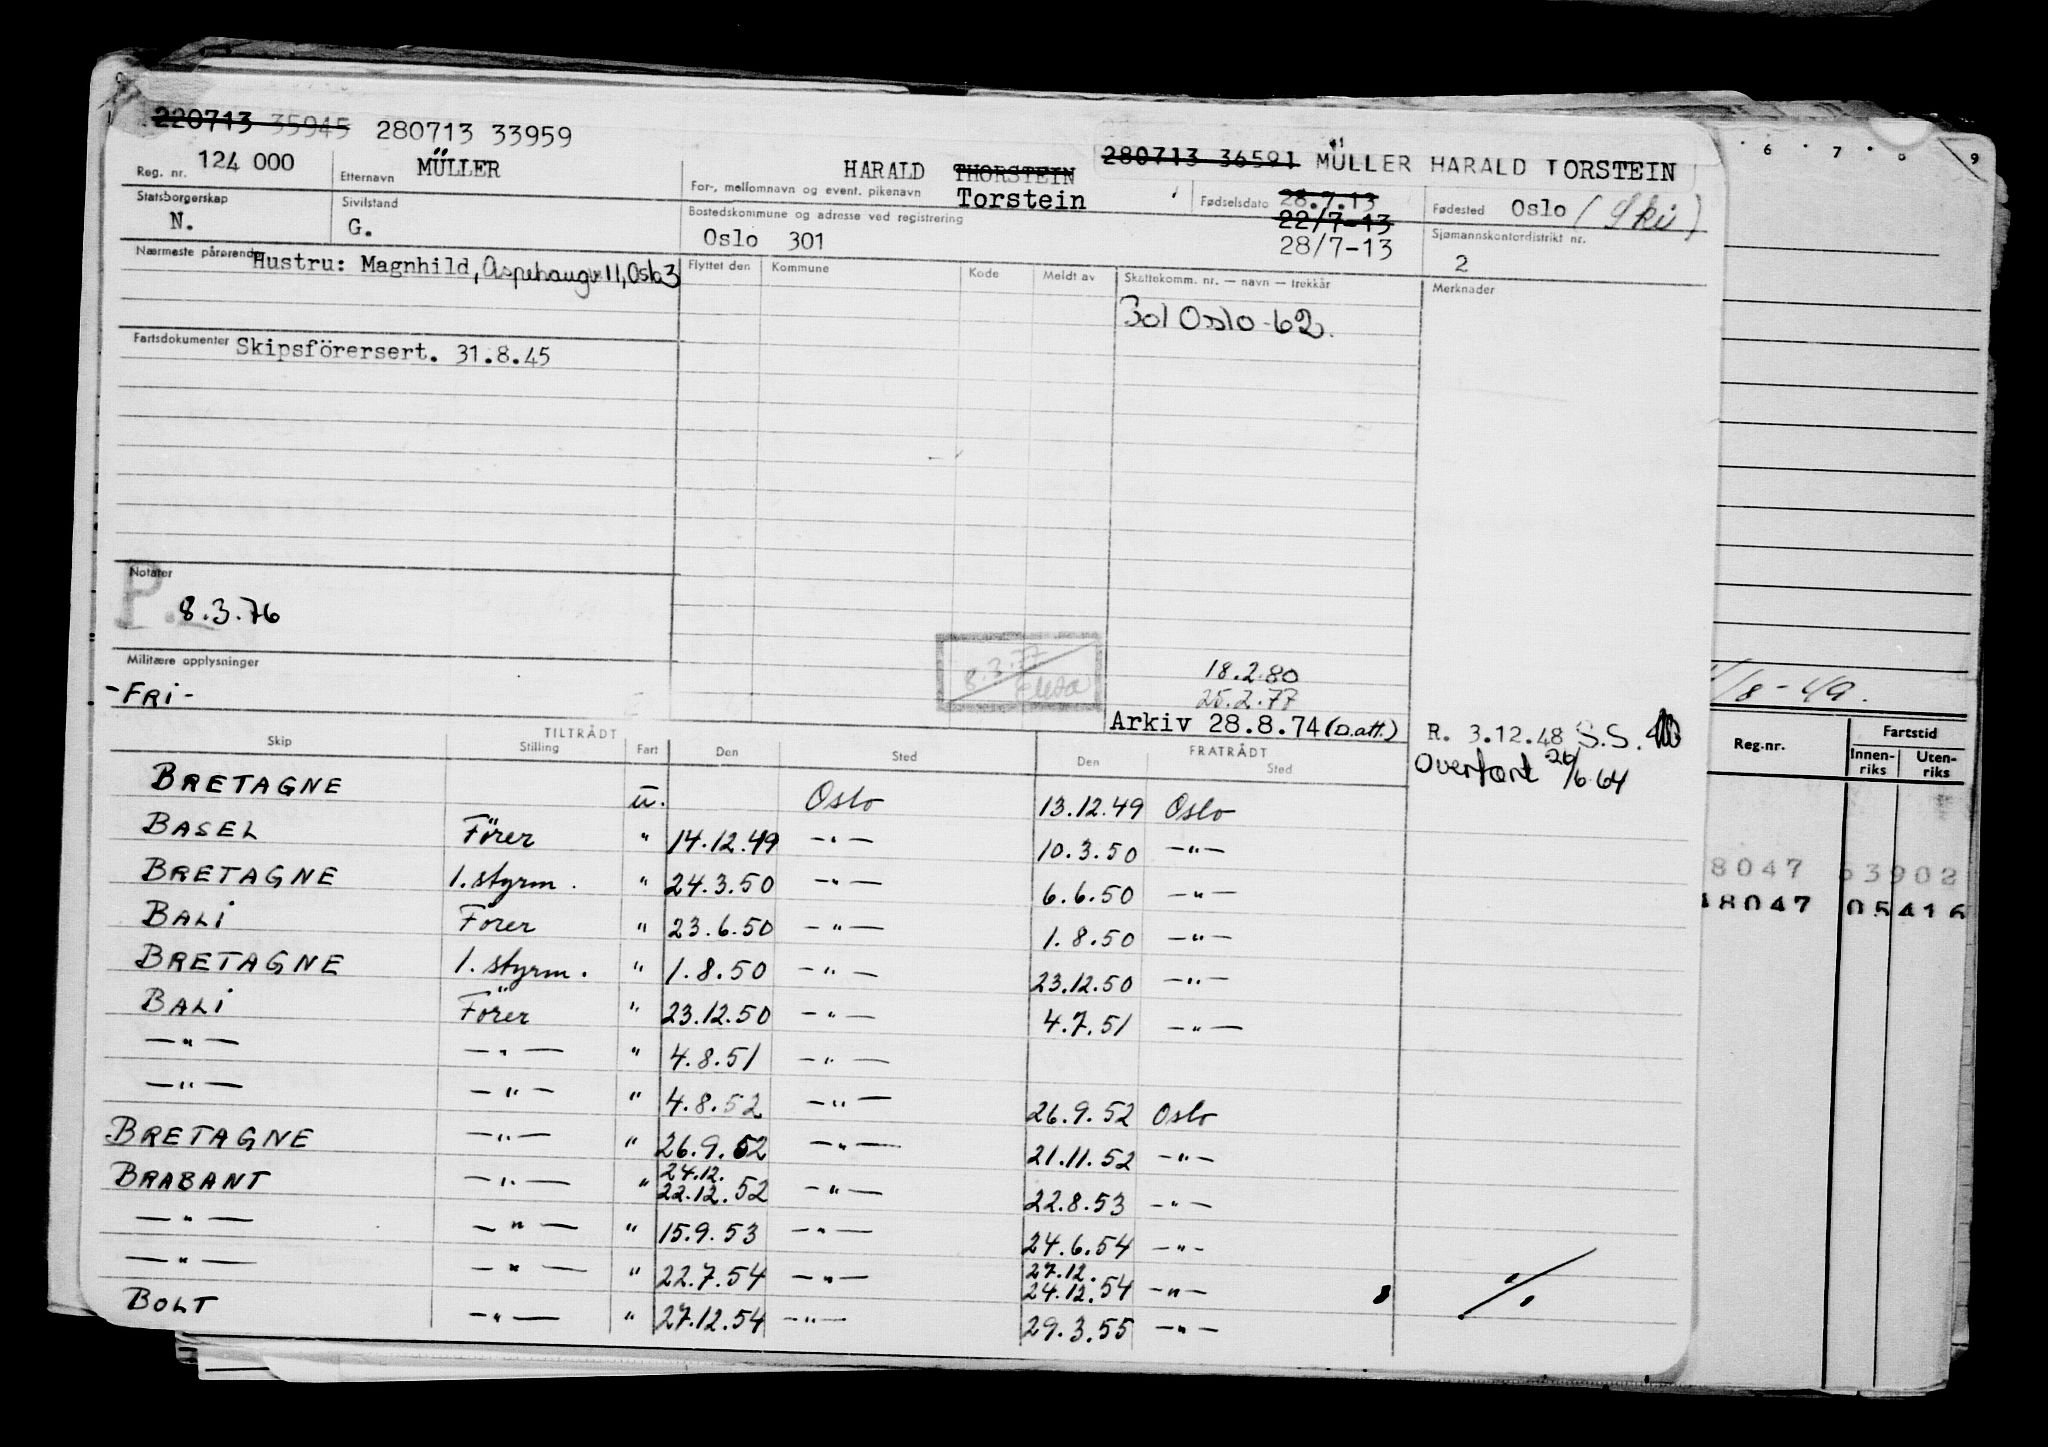 220713 35945 280713 33959
280713 36591 MÜLLER HARALD TORSTEIN
Reg. nr. 124 000 Etternavn MÜLLER For-, mellomnavn og event. pikenavn HARALD THORSTEIN Torstein Fødselsdato 28.7.13 22/7-13 28/7-13 Fødested Oslo (Ski)
Statsborgerskap N. Sivilstand G. Bostedskommune og adresse ved registrering Oslo 301 Sjømannskontordistrikt nr. 2
Nærmeste pårørende Hustru: Magnhild, Aspehaugv 11, Oslo 3 Flyttet den Kommune Kode Meldt av Skattekomm. nr. — navn — trekkår Merknader
301 Oslo - 62.
Fartsdokumenter Skipsförersert. 31.8.45
Notater
P. 8.3.76
Militære opplysninger
-FRI-
8.3.77
18.2.80
25.2.77
Arkiv 28.8.74 (D.att.) R. 3.12.48 S.S.
Overført 26/6 64
TILTRÅDT FRATRÅDT
Skip Stilling Fart Den Sted Den Sted
BRETAGNE u. Oslo 13.12.49 Oslo
BASEL Förer " 14.12.49 —"— 10.3.50 —"—
BRETAGNE 1. styrm. " 24.3.50 —"— 6.6.50 —"—
BALI Förer " 23.6.50 —"— 1.8.50 —"—
BRETAGNE 1. styrm. " 1.8.50 —"— 23.12.50 —"—
BALI Förer " 23.12.50 —"— 4.7.51 —"—
—"— —"— " 4.8.51 —"—
—"— —"— " 4.8.52 —"— 26.9.52 Oslo
BRETAGNE —"— " 26.9.52 —"— 21.11.52 —"—
BRABANT —"— " 24.12. 22.12.52 —"— 22.8.53 —"—
—"— —"— " 15.9.53 —"— 24.6.54 —"—
—"— —"— " 22.7.54 —"— 27.12. 24.12.54 —"—
BOLT —"— " 27.12.54 —"— 29.3.55 —"—
6 7 8 9
/8-49.
Reg.nr. Fartstid
Innen-riks Uten-riks
8047 63902
18047 05416